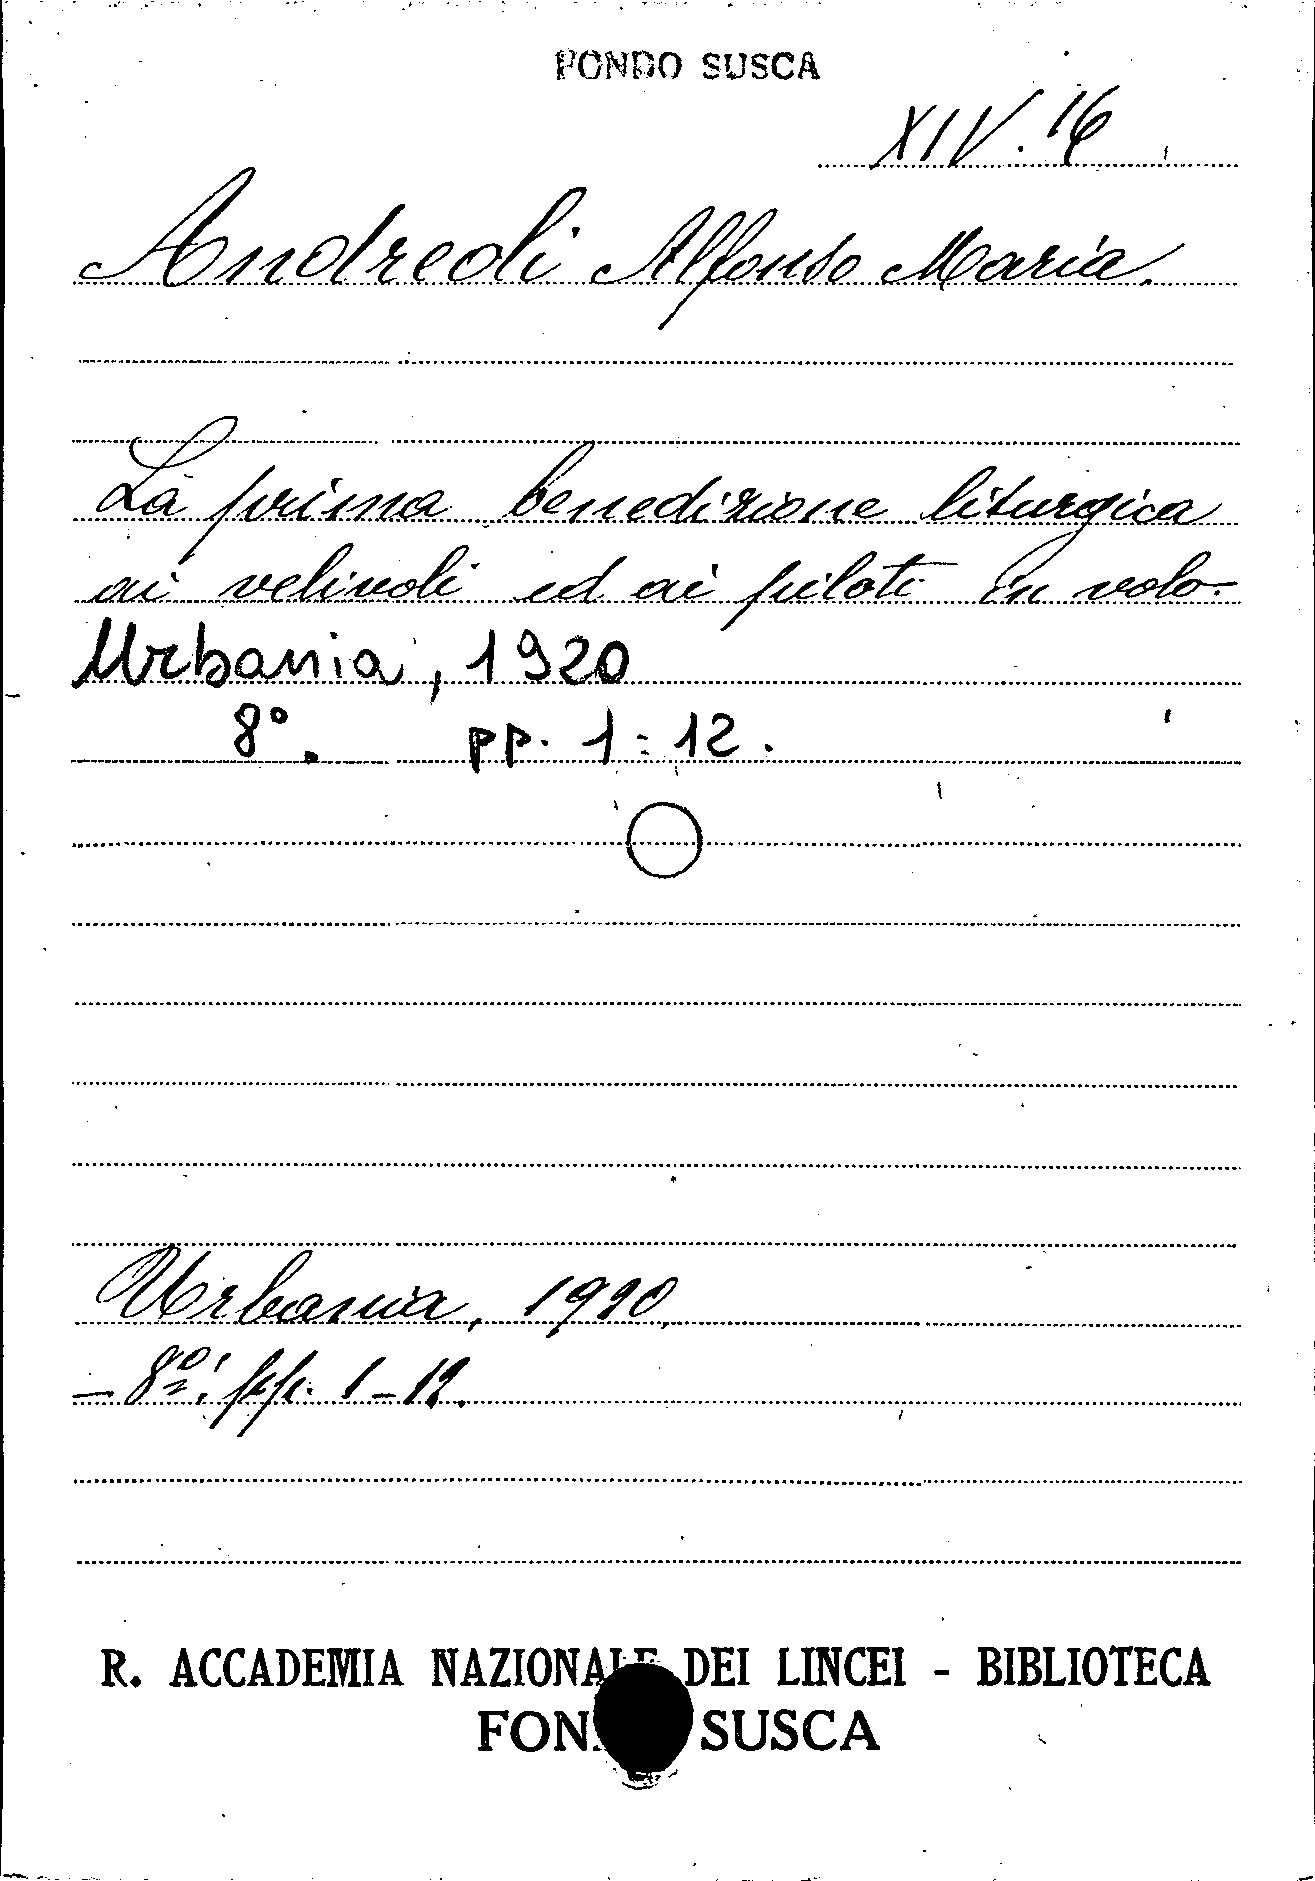 FONDO SUSCA
XIV. 16
Andreoli Alfonso Maria.
La prima benedizione liturgica
ai velivoli ed ai piloti in volo.
Urbania, 1920
8°. pp. 1-12.
Urbania, 1920.
- 8º; pp. 1-12.
R. ACCADEMIA NAZIONALE DEI LINCEI - BIBLIOTECA
FONDO SUSCA